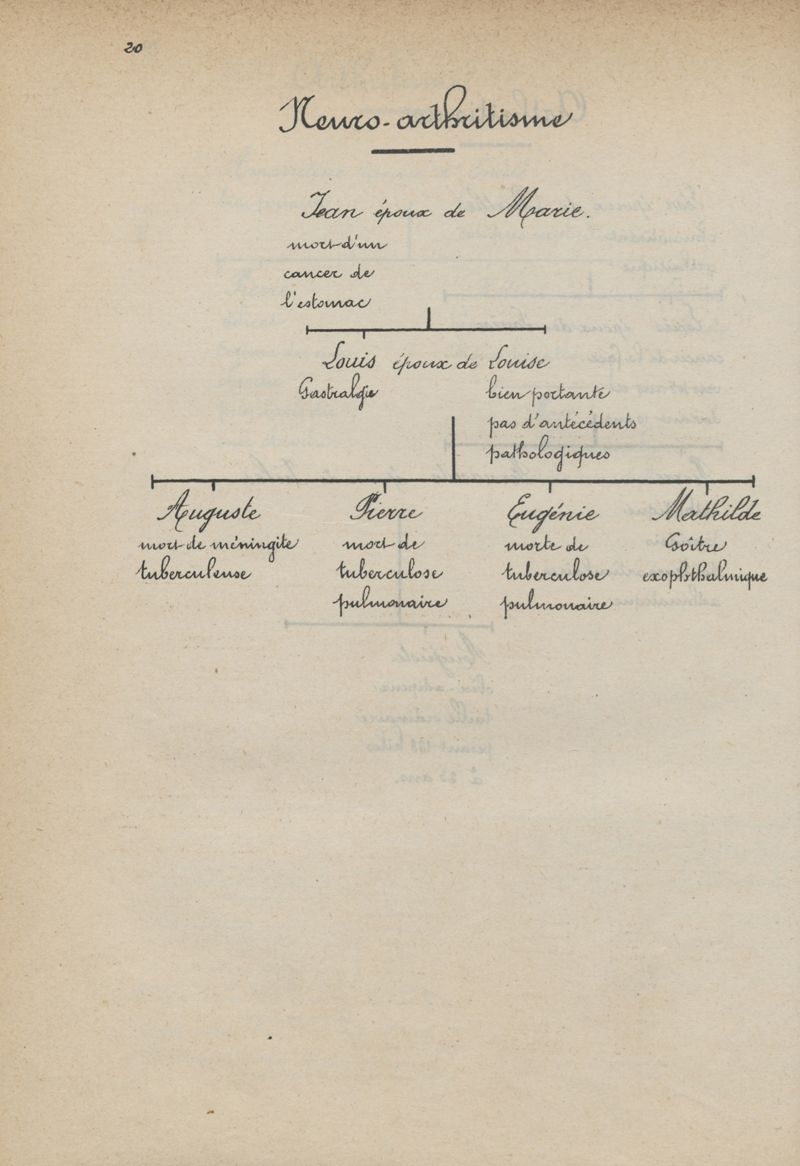 20
Neuro-arthritisme
Jean époux de Marie.
mort d'un
cancer de
l'estomac
Louis époux de Louise
Gastralgie
bien portante
pas d'antécédents
pathologiques
Auguste
mort de méningite
tuberculeuse
Pierre
mort de
tuberculose
pulmonaire
Eugénie
morte de
tuberculose
pulmonaire
Mathilde
Goître
exophthalmique